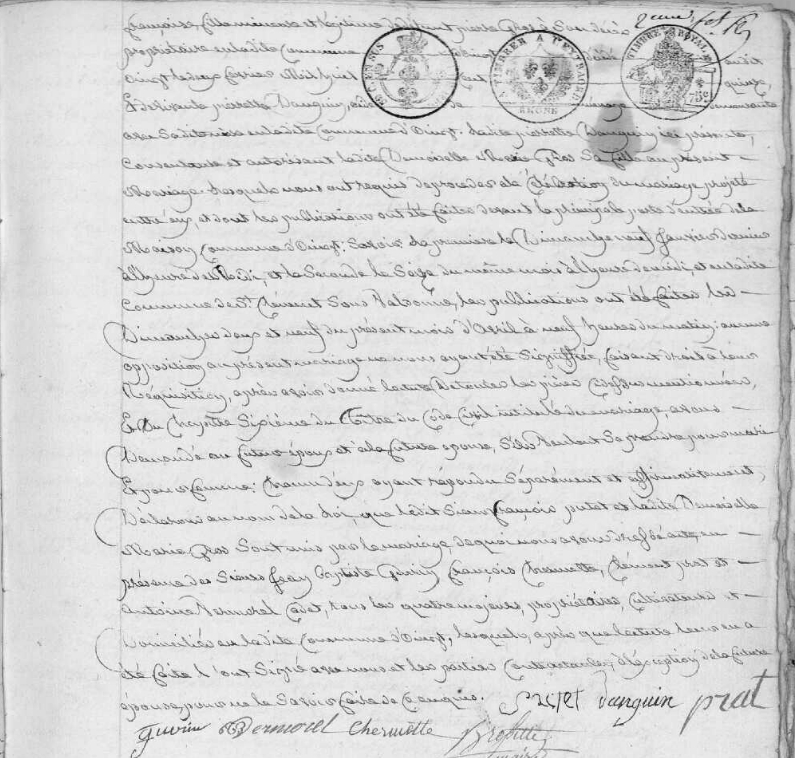 françoise, fille mineure et légitime de défunt pierre Gros de son vivant
propriétaire en ladite Commune
2 cent. fol. 16
RECENSIS
A TIMBRER A L'EXTRAORD.
RHONE
TIMBRE ROYAL
75c
Oingt le dix février Mil huit cent
Et de vivante pierrette Danguin,
avec sa ditte mère en ladite Commune d'Oingt. ladite pierrette Danguin ici présente,
Consentante et autorisant ladite Demoiselle Marie Gros sa fille au présent
Mariage. Lesquels nous ont requis de procéder à la Célébration du mariage projeté
entre eux, et dont les publications ont été faites devant la principale porte d'entrée de la
Maison Commune d'Oingt; Savoir la première le Dimanche neuf Janvier dernier
à l'heure de Midi, et la Seconde le Seize du même mois à l'heure de midi, et en ladite
Commune de St. Clément Sous Valsonne, les publications ont été faites les
Dimanches deux et neuf du présent mois d'Avril à neuf heures du matin; aucune
opposition au présent mariage ne nous ayant été Signiffiée, faisant droit à leur
Réquisition, après avoir donné lecture de toutes les pièces Ci-dessus mentionnées,
Et du Chapitre Sixième du titre du Code Civil intitulé du mariage, avons
Demandé au futur époux et à la future épouse, S'ils Veulent Se prendre pour mari
Et pour femme: Chacun d'eux ayant répondu Séparément et affirmativement,
Déclarons au nom de la loi, que ledit Sieur françois putet et ladite Demoiselle
Marie Gros Sont unis par le mariage, de quoi nous avons dressé acte, en
présence des Sieurs Jean Baptiste Guérin, françois Chermette, Clément prat et
Antoine Vermorel Cadet, tous les quatre majeurs, propriétaires, Cultivateurs et
Domiciliés en ladite Commune d'Oingt, lesquels, après que lecture leur en a
été faite l'ont Signé avec nous et les parties Contractantes, à l'exception de la future
épouse, pour ne le Savoir faite de Ce enquise.
putet danguin prat
guerin Vermorel Chermette